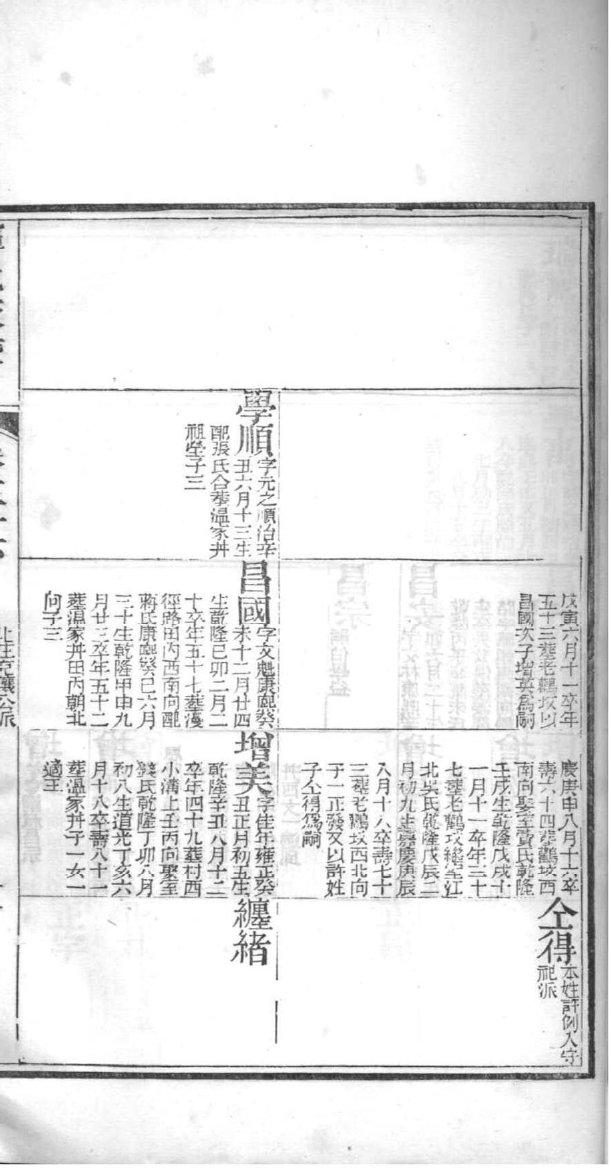 戊寅六月十一卒年
五十三葬老鸛坟以
昌國次子增英為嗣
慶庚申八月十六卒
壽六十四葬鸛坟西
南向娶室黃氏乾隆
壬戌生乾隆戊戌十
一月十一卒年三十
七葬老鸛坟繼室江
北吳氏乾隆戊辰二
月初九生嘉慶庚辰
八月十六卒壽七十
三葬老鸛坟西北向
子一正發又以許姓
子仝得為嗣
仝得
本姓許例入守
祀派
學順
字元之順治辛
丑六月十三生
配張氏合葬溫家井
祖塋子三
昌國
字文魁康熙癸
未十二月廿四
生乾隆己卯二月二
十卒年五十七葬漫
徑路田內西南向配
蔣氏康熙癸巳六月
三十生乾隆甲申九
月廿三卒年五十二
葬溫家井田內朝北
向子三
增美
字佳年雍正癸
丑正月初五生
乾隆辛丑八月十二
卒年四十九葬村西
小溝上壬丙向娶室
龔氏乾隆丁卯八月
初八生道光丁亥六
月十八卒壽八十一
葬溫家井子一女一
適王
纏緒